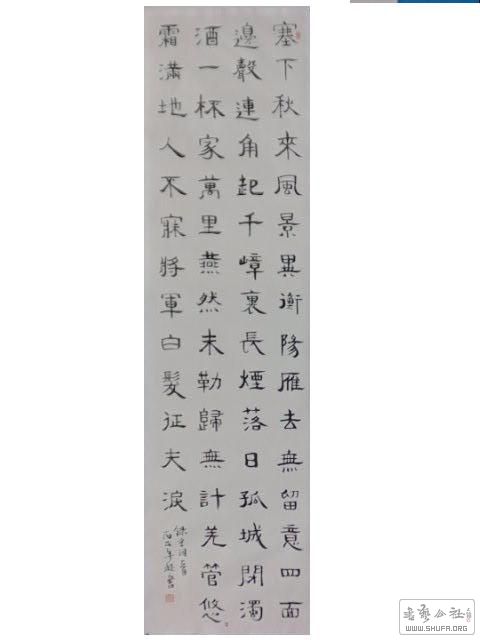 塞下秋來風景異衡陽雁去無留意四面
邊聲連角起千嶂裏長煙落日孤城閉濁
酒一杯家萬里燕然未勒歸無計羌管悠
霜滿地人不寐將軍白髮征夫淚
书艺公社
WWW.SHUFA.ORG